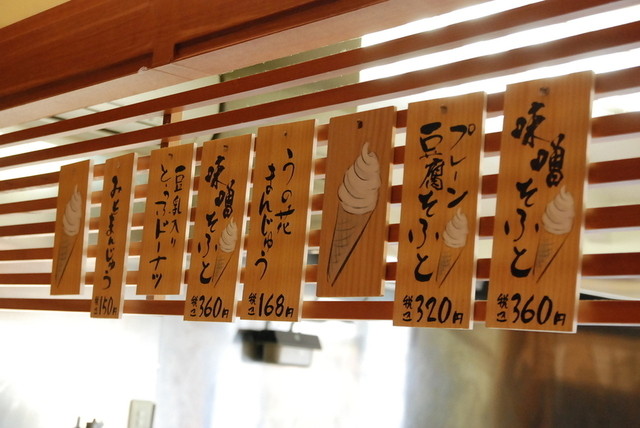 みそまんじゅう
税込150円
豆乳入り
とうふドーナツ
味噌そふと
税込360円
うの花
まんじゅう
税込168円
プレーン
豆腐そふと
税込320円
味噌そふと
税込360円